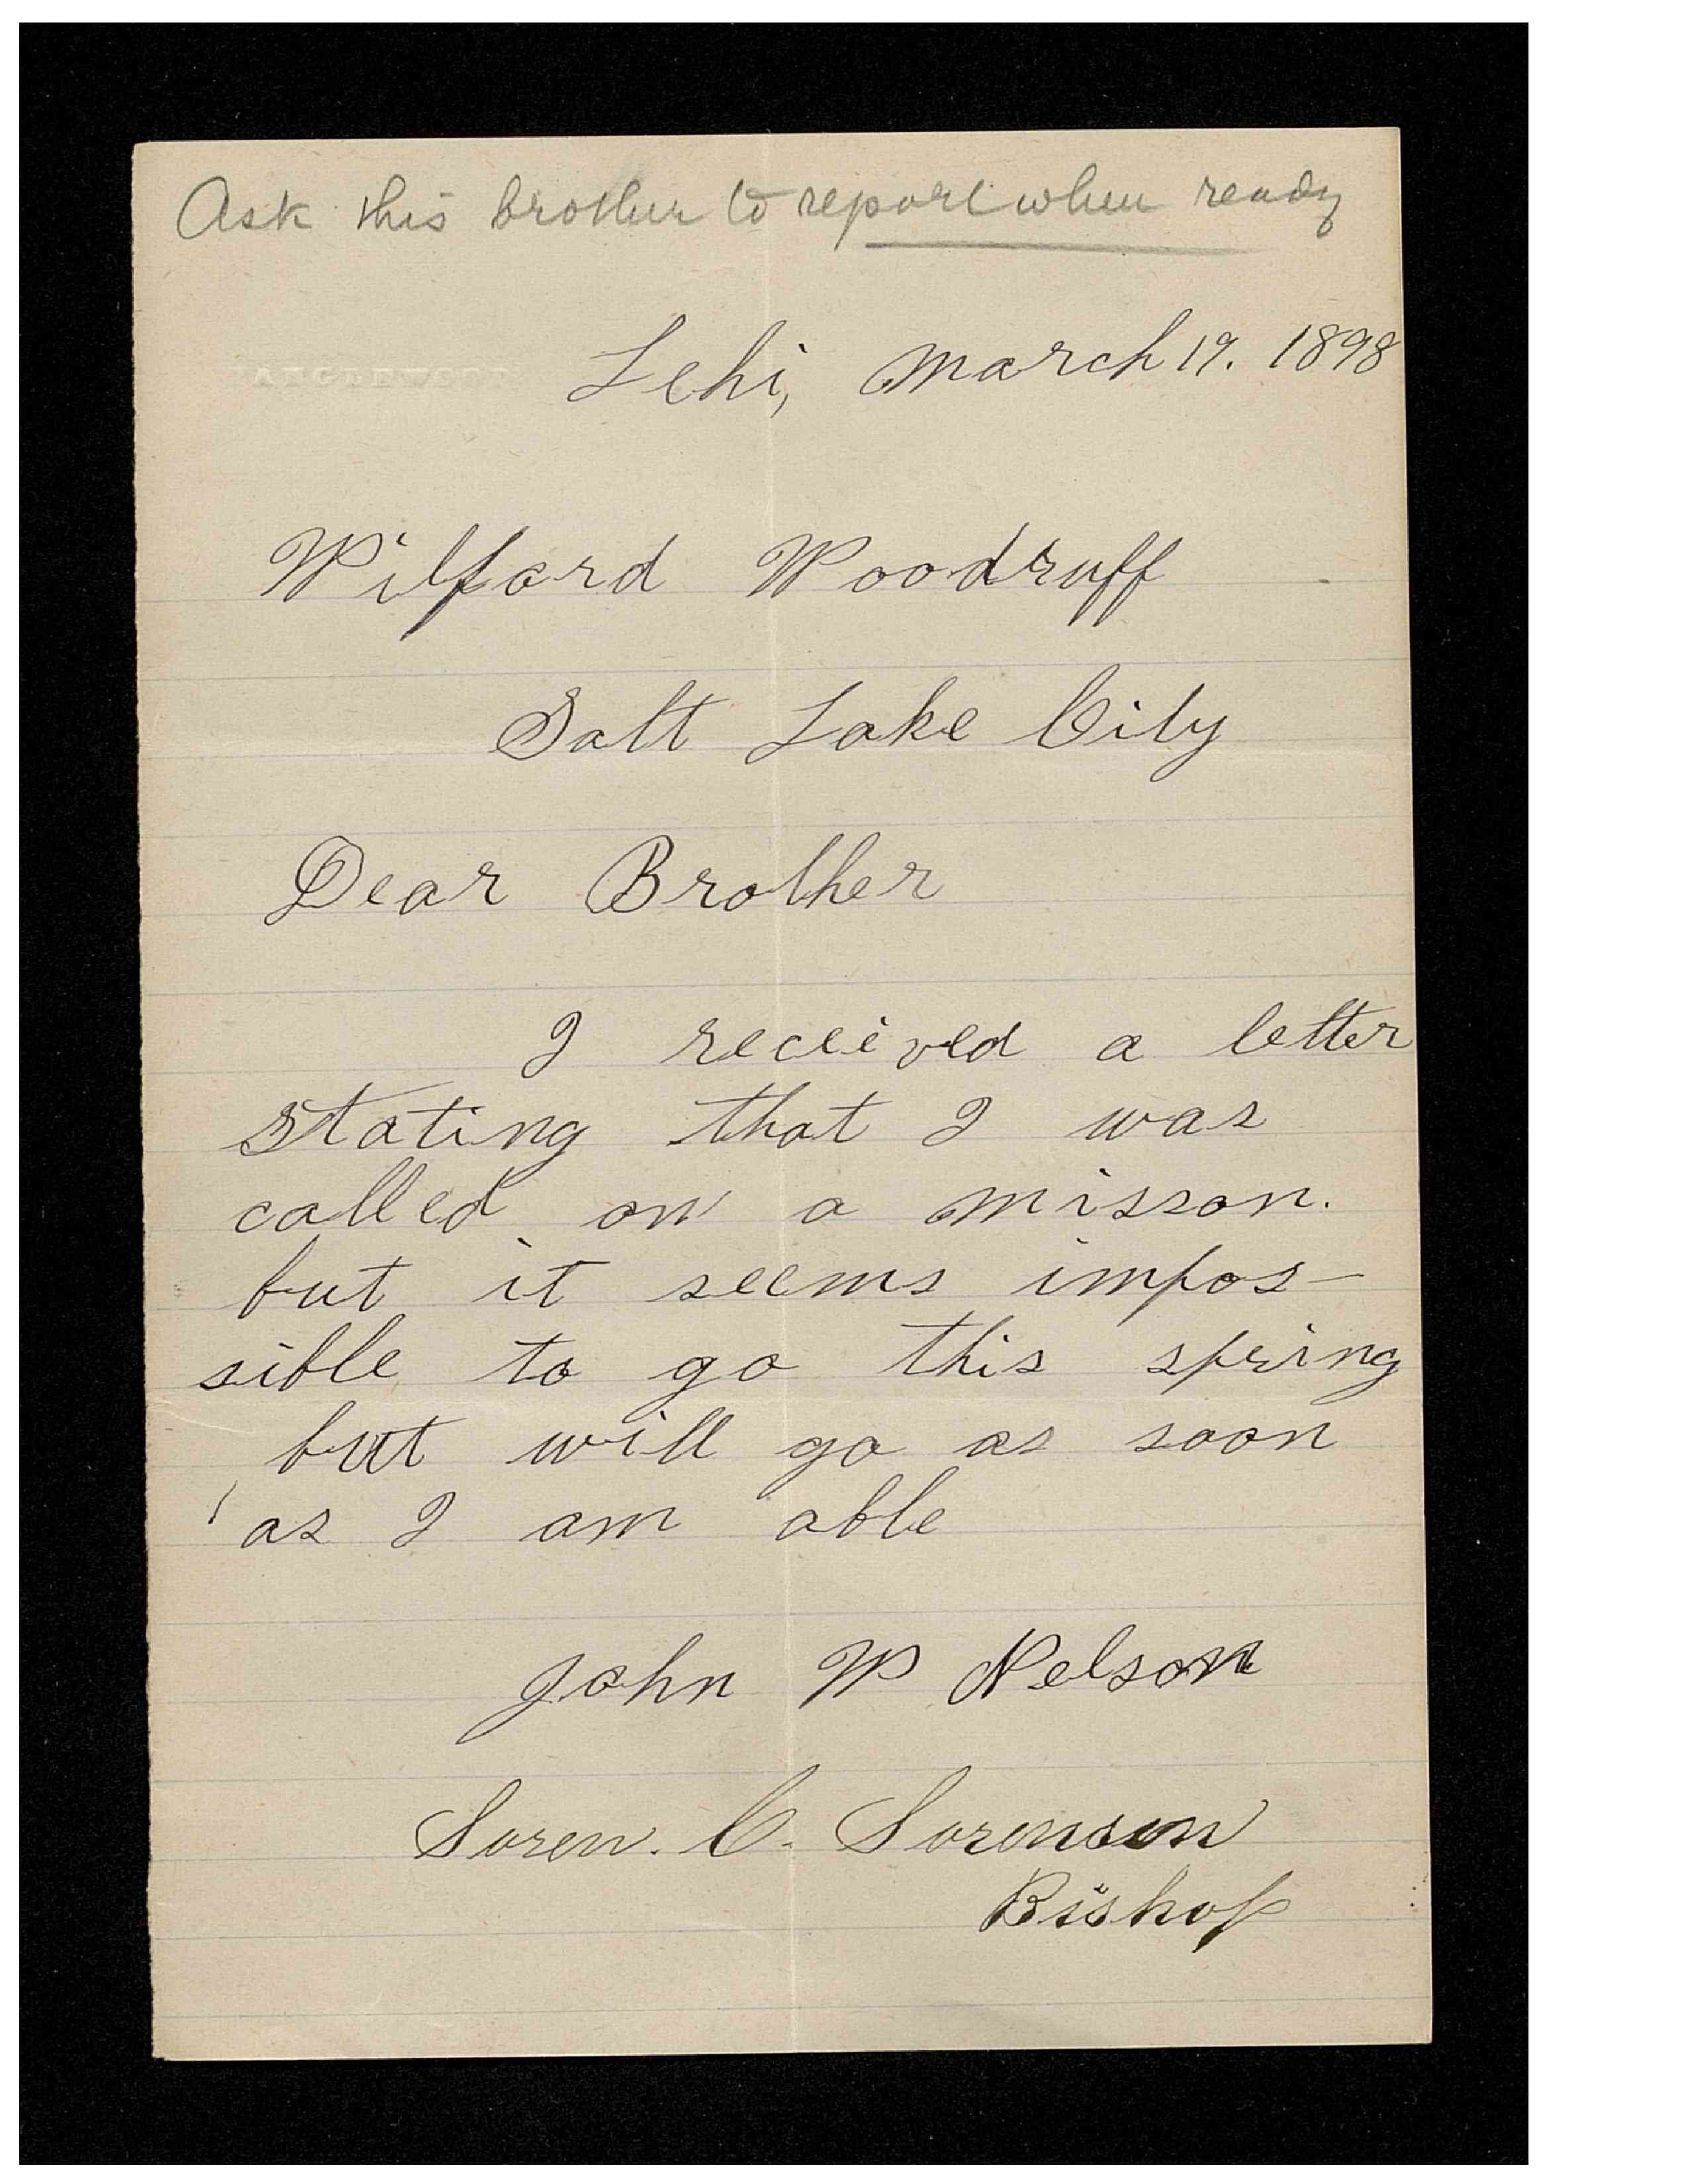 Ask this brother to report when ready
Lehi, March 19. 1898
Wilford Woodruff
Salt Lake City
Dear Brother
I receieved a letter
stating that I was
called on a misson.
but it seems impos-
sible to go this spring
but will go as soon
as I am able
John W Nelson
Soren. C. Sorenson
Bishop